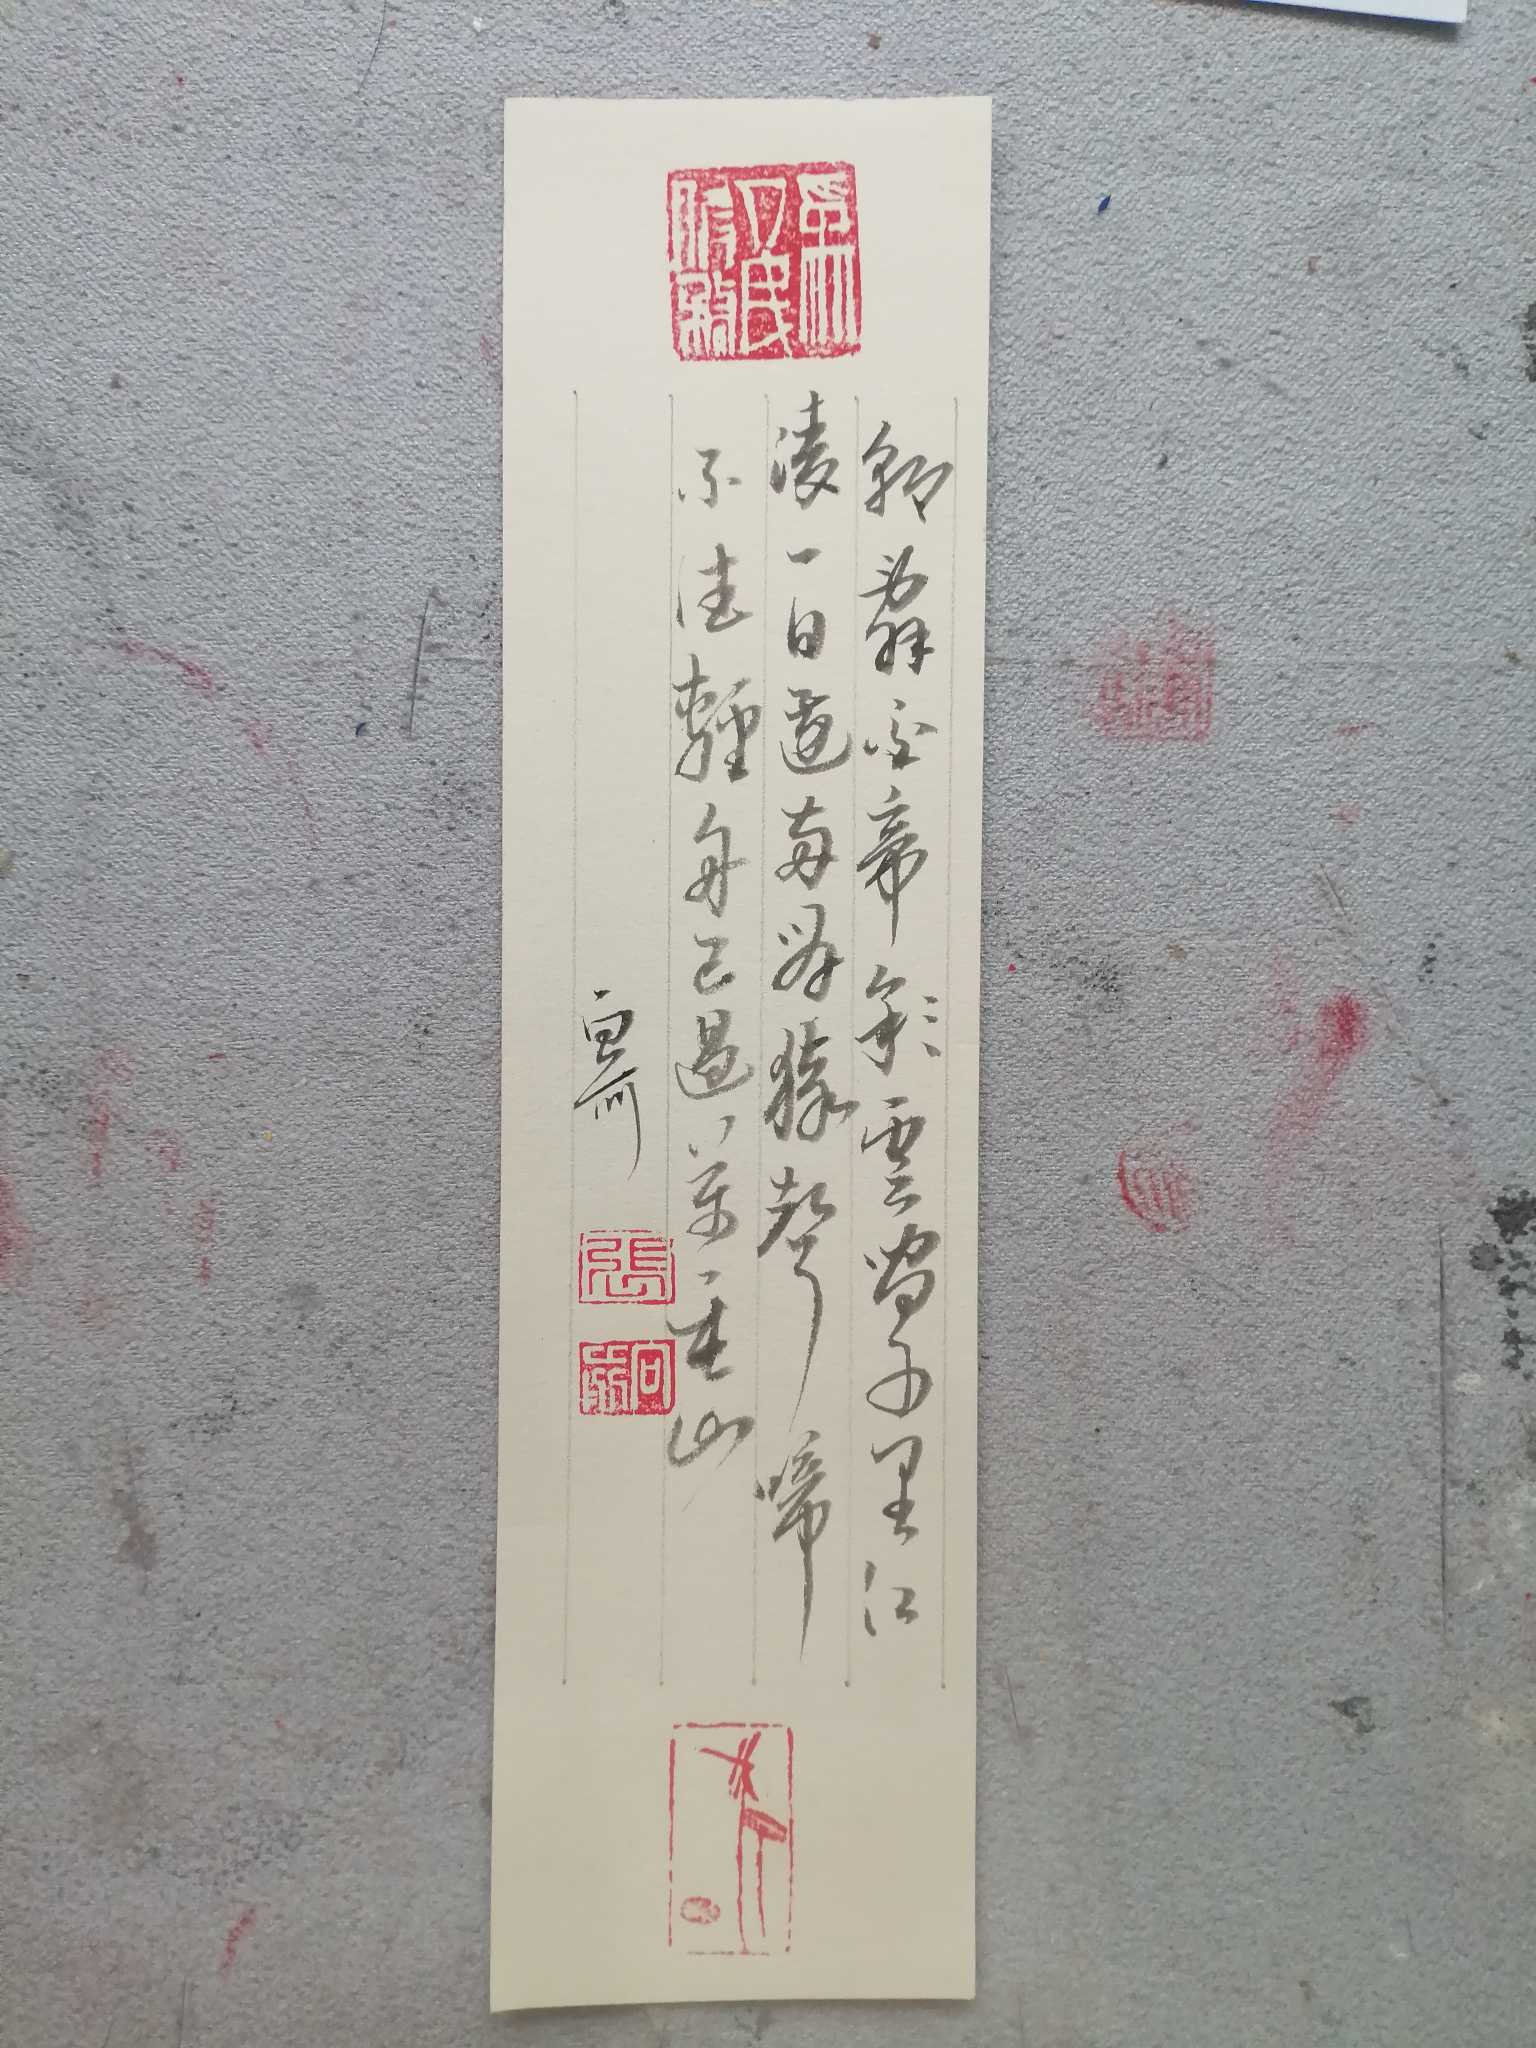 朝辭白帝彩雲間千里江
陵一日還兩岸猿聲啼
不住輕舟已過萬重山
張